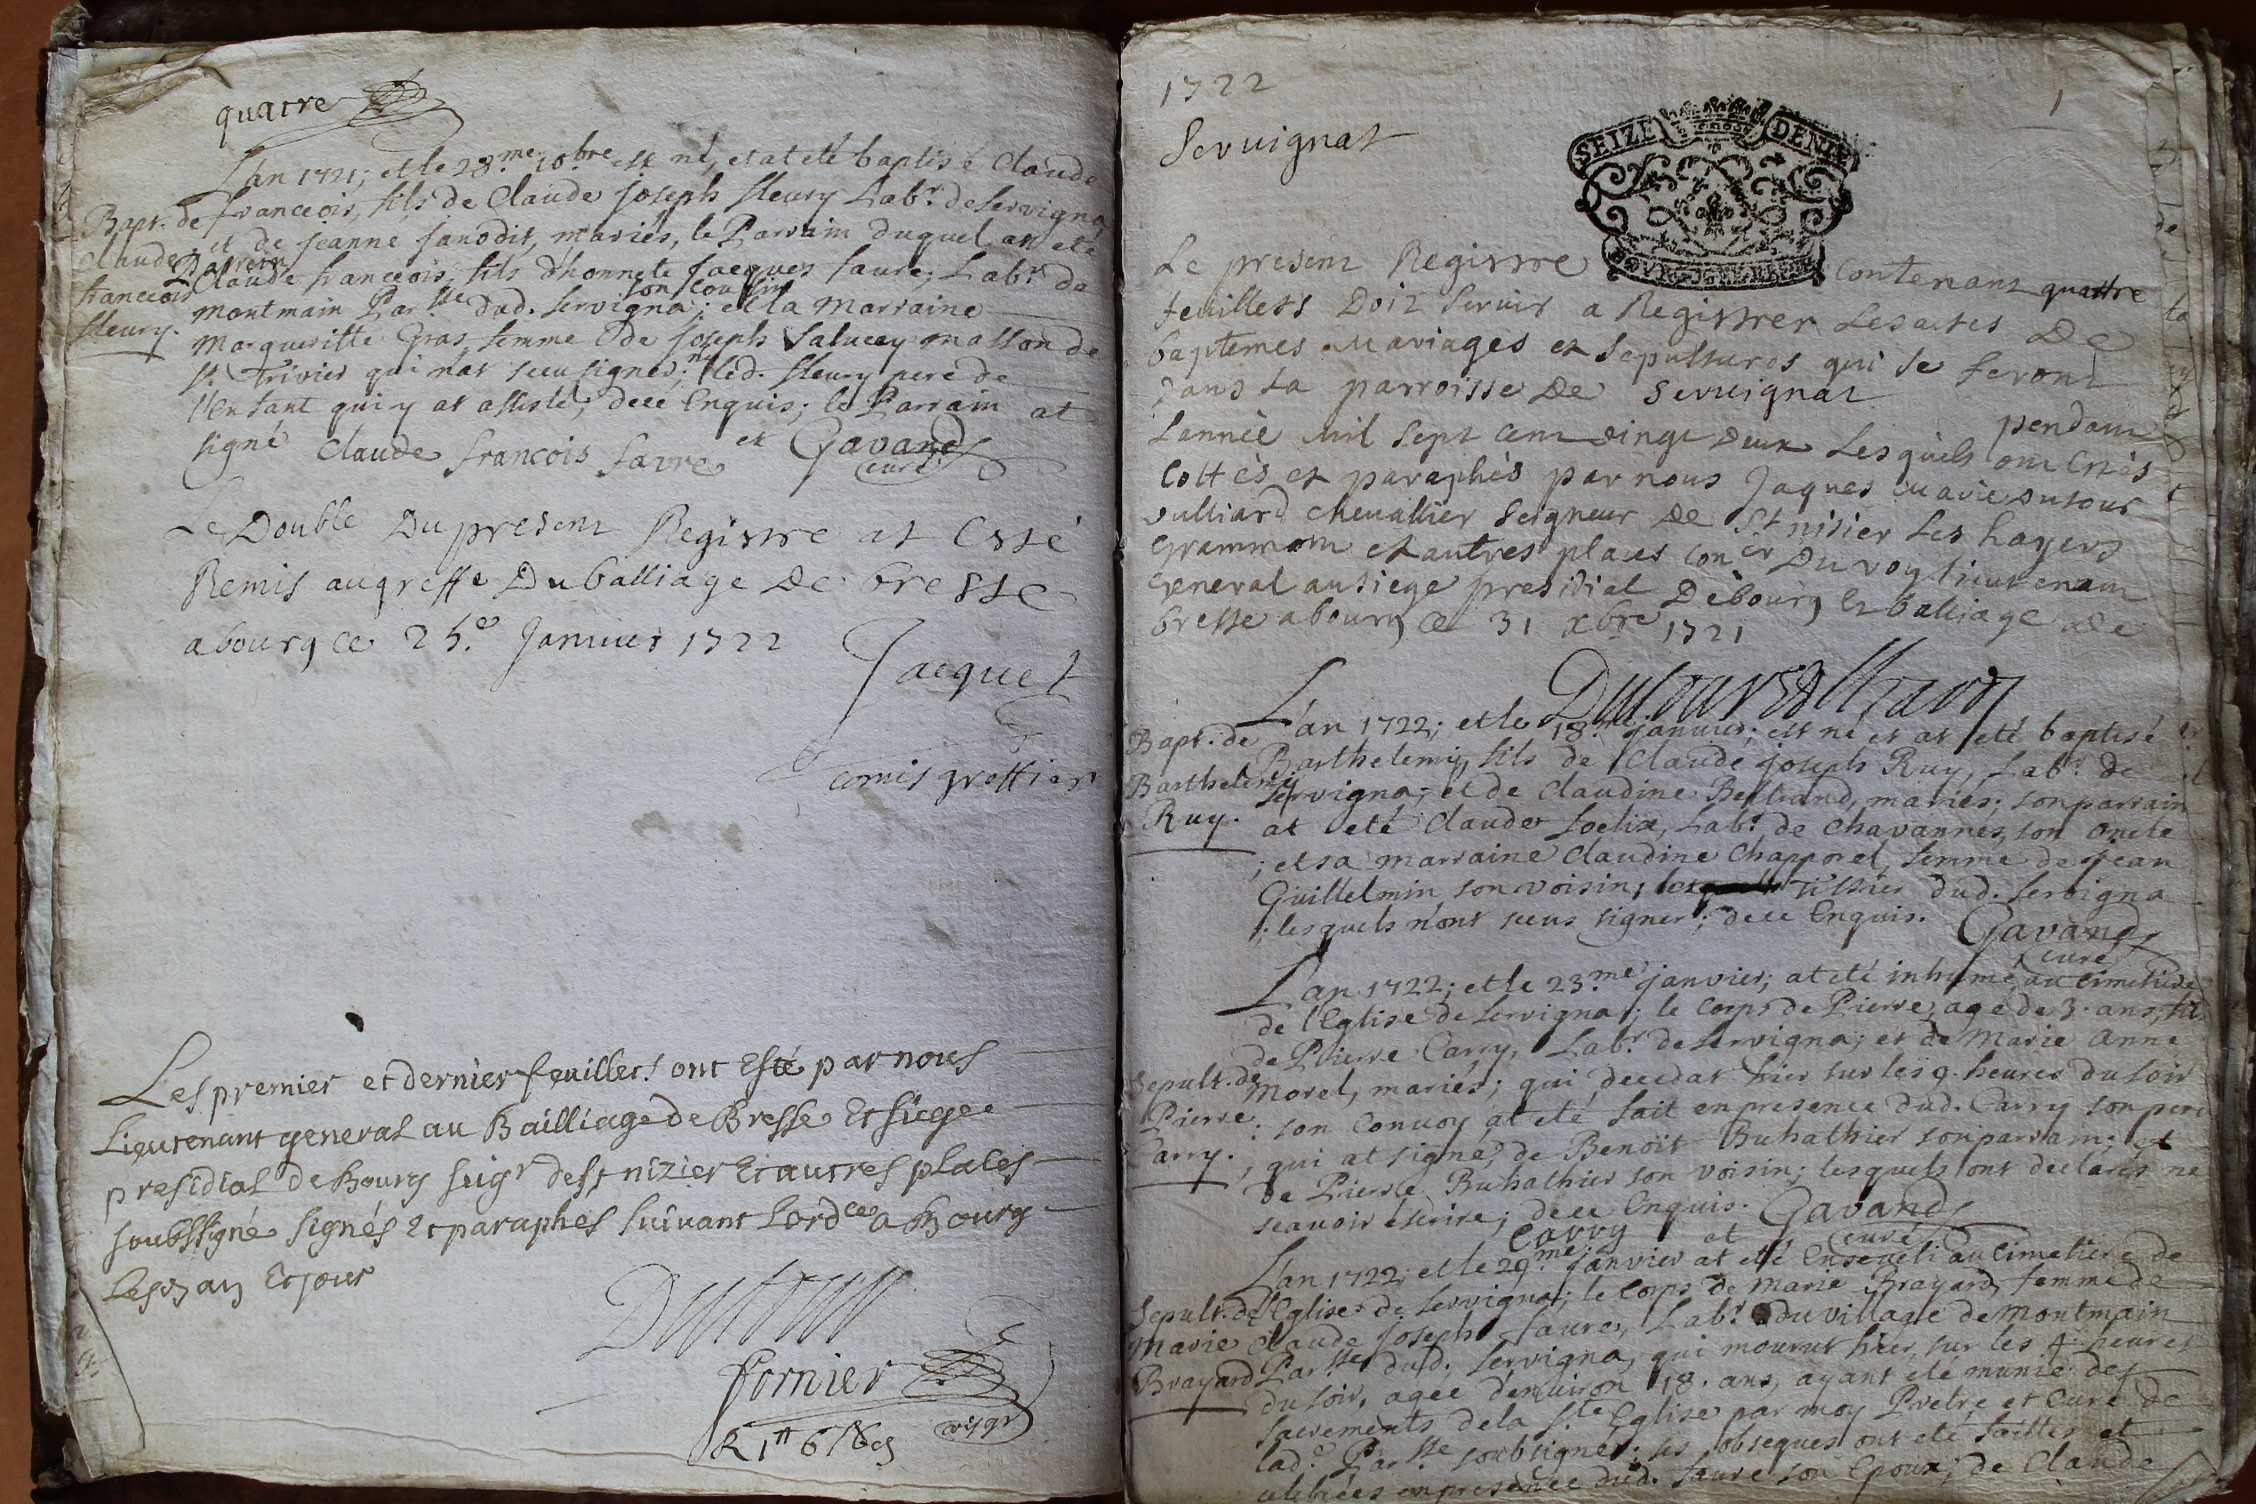 quatre
L'an 1721; et le 28.me 10bre est né, et at eté baptisé Claude
Bapt. de
claude
francois
fleury.
francois, fils de Claude joseph fleury Labr. de Servigna
et de jeanne janodit, mariés, le Parrain duquel at eté
Parrein
Claude francois, fils d'honnete jacques faure, Labr. de
son cousin
montmain Par.sse dud. Servigna; et la marraine
Margueritte Gras femme de joseph Salucey masson de
St. Trivier qui n'at sceu signer; ny led. fleury pere de
l'enfant qui y at assisté, de ce Enquis; le Parrain at
signé Claude francois favre et Gavand
curé
Le Double Du present Registre at Esté
Remis au greffe Du balliage De bresse
a bourg ce 25.e Janvier 1722
Jacquet
comis greffier
Les premier et dernier feuillets ont Esté par nous
Lieutenant general au Bailliage de Bresse Et siege
presidial de Bourg seigr de St nizier Et autres places
soubssigné signés Et paraphes suivant Lordce a Bourg
Les an Et jour
Dutour
fornier
R 1tt 6s
1722
1
Servignat
SEIZE DENIE
Le present Registre contenant quattre
feuillets Doit servir a Registrer Les actes De
baptemes mariages et sepultures qui se feront
Dans La parroisse De Servignat
pendant
Lannée mil sept cent vingt deux Lesquels ont Estés
Cottés et paraphés par nous Jaques marie Dutour
vulliard chevallier Seigneur De St nisier Les hayers
Grammont et autres places Coner Du roy lieutenant
General au siege presidial De bourg Et balliage De
bresse a bourg ce 31 xbre 1721
Dutour Vulliard
L'an 1722; et le 18.me janvier; est né et at eté baptisé
Bapt. de
Barthelemy
Ruy.
Barthelemy, fils de Claude joseph Ruy, Labr. de
Servigna; et de Claudine Bertrand, mariés; son parrain
at eté Claude foelix, Labr. de Chavannes, son oncle
; et sa marraine Claudine Chapporel, femme de jean
Guillelmin son voisin; Tissier dud. Servigna
; lesquels n'ont sceus signer; de ce Enquis. Gavand
curé
L'an 1722; et le 23.me janvier; at eté inhumé au cimetiere
de l'Eglise de Servigna; le corps de Pierre, agé de 3. ans, fils
de Pierre Carry, Labr. de Servigna; et de Marie Anne
Sepult. de
Pierre
Carry.
Morel, mariés; qui decedat hier sur les 9. heures du soir
; son Convoy at eté fait en presence dud. Carry son pere
, qui at signé, de Benoit Buhathier son parrain; et
de Pierre Buhathier son voisin; lesquels ont declarés ne
scavoir escrire; de ce Enquis. Gavand
Carry et curé
L'an 1722; et le 29.me janvier at eté Enseveli au Cimetiere de
Sepult. de
Marie
Brayard
l'Eglise de Servigna; le Corps de Marie Brayard, femme de
Claude joseph faure, Labr. du village de Montmain
Par.sse dud. Servigna, qui mourut hier, sur les 4. heures
du soir, agée d'environ 18. ans, ayant eté munie des
sacrements de la S.te Eglise par moy Pretre et Curé de
lad. Par.sse soubsigné; ses obseques ont eté faittes et
celebrées en presence dud. faure son Epoux; de Claude